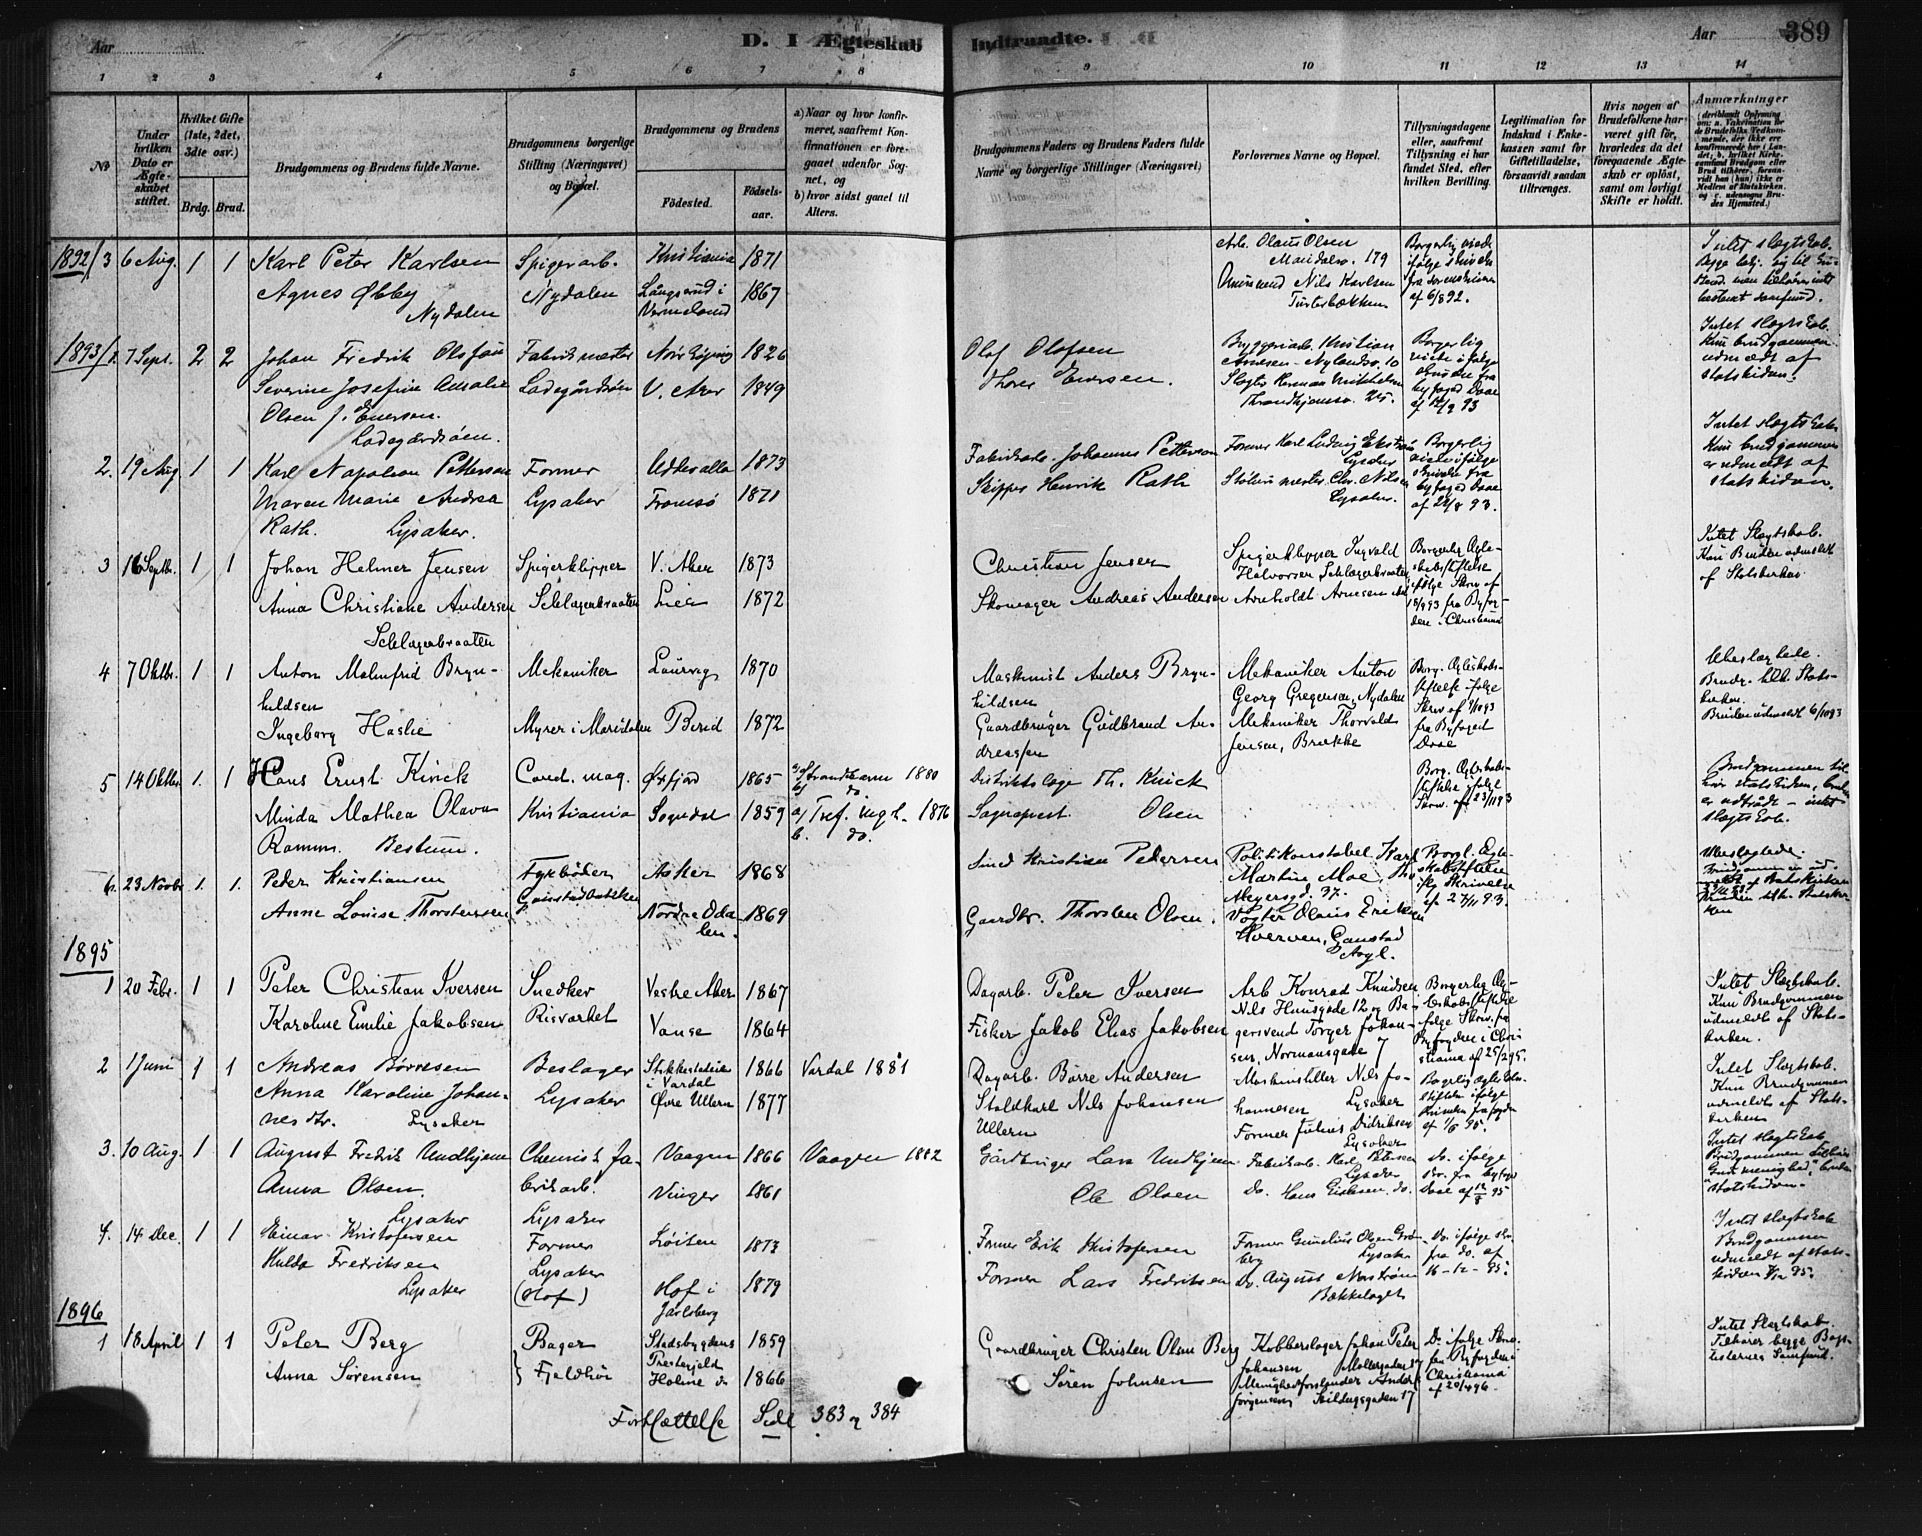 Aar
D. I Ægteskab
Indtraadte.
Aar
389
1 2 3 4 5 6 7 8
9 10 11 12 13 14
No
Under hvilken Dato er Ægteskabet stiftet.
Hvilket Gifte (1ste, 2det, 3die osv.)
Brdg. Brud.
Brudgommens og Brudens fulde Navne.
Brudgommens borgerlige Stilling (Næringsvei) og Bopæl.
Brudgommens og Brudens
Fødested.
Fødselsaar.
a) Naar og hvor konfirmeret, saafremt Konfirmationen er foregaaet udenfor Sognet, og
b) hvor sidst gaaet til Alters.
Brudgommens Faders og Brudens Faders fulde Navne og borgerlige Stillinger (Næringsvei)
Forlovernes Navne og Bopæl.
Tillysningsdagene eller, saafremt Tillysning ei har fundet Sted, efter hvilken Bevilling.
Legitimation for Indskud i Enkekassen samt for Giftetilladelse, forsaavidt saadan tiltrænges.
Hvis nogen af Brudefolkene har været gift før, hvorledes da det foregaaende Ægteskab er opløst, samt om lovligt Skifte er holdt.
Anmærkninger
1892/3 6 Aug. 1 1 Karl Peter Karlsen Spigerarb. Kristiania 1871
Agnes Øbby Nydalen 1867
Nydalen Vermeland
Arb. Olaus Olsen
Maridalsv. 179
Nils Karlsen
af 6/8 92.
Intet slegtskab.
1893/1. 7 Sept. 2 2 Johan Fredrik Olsson Fabrikmester Norrköping 1826
Severine Josefine Amalie Ladegårdsøen V. Aker 1849
Olsen f. Eversen.
Ladegårdsøen.
Olof Olofsen
Thore Eversen.
Bryggeriarb. Kristian
Arnesen - Nylandsv. 10
Slagter Herman Mikkelsen
Borgerlig
viede ifølge
Intet slegtskab.
Kun brudgommen
udmeldt af
statskirken.
2. 19 Aug 1 1 Karl Napoleon Petterson Former Uddevalla 1873
Maren Marie Andrea Lysaker Tromsø 1871
Rath. Lysaker.
Fabrikarb. Johannes Petterson
Skipper Henrik Rath
Former Karl Ludvig Ekstrøm
Lysaker
Støberimester Chr. Nilsen
Lysaker.
Borgerlig
viede ifølge
skrivelse fra
byfoged Daae
Intet slegtskab
Kun brudgommen
er udmeldt af
statskirken.
3 16 Septbr. 1 1 Johan Helmer Jensen Spigerklipper V. Aker 1873
Anna Christiane Andersen Schlagerbraaten Lier 1872
Schlagerbraaten
Christian Jensen
Skomager Andreas Andersen
Spigerklipper Ingvald
Halvorsen Schlagerbraaten
Arnholdt Arnesen
Borgerlig Ægteskabsstiftelse
ifølge Skriv af
18/9 93 fra Byfogden
i Christiania
Intet Slegtskab.
Kun Bruden udmeldt
af Statskirken
4 7 Oktbr. 1 1 Anton Malmfrid Bryn- Mekaniker Laurvig 1870
hildsen
Ingeborg Haslie Myrer i Maridalen Birid 1872
Maskinist Anders Bryn-
hildsen
Gaardbruger Gudbrand An-
dressen
Mekaniker Anton
Georg Gregersen, Nydalen
Mekaniker Thorvald
Jensen, Brække
Borg. Ægteskabs-
stiftelse ifølge
fra Byfoged
Daae
Ubeslægtede.
Brudg. tilh. Stats-
kirken.
Bruden udmeldt 6/10 93
5 14 Oktbr. 1. 1 Hans Ernst Kinck Cand. mag. Øxfjord 1865 a) Strandebarm 1880
b) do.
Minda Mathea Olava Kristiania Sogndal 1859 a) Tref. mgh. 1876
b. do.
Ramm. Bestum.
Distriktslæge Th. Kinck
Sogneprest Olsen
Borg. Ægteskabs-
stiftelse ifølge
Skriv. af 23/11 93
Brudgommen til-
hører statskirken, bruden
er udtrådt - intet
slegtskab.
6. 23 Novbr 1. 1. Peder Kristiansen Fyrbøder Asker 1868
Anne Louise Thorstensen Gaustadbakken Nordre Oda- 1869
len.
Smed Kristian Pedersen
Gaardbr. Thorsten Olsen.
Politikonstabel Karl
Martin Moe,
Meyersgd. 37.
Vogter Olaus Eriksen
Hverven, Gaustad
Asyl.
Borgl. Ægte-
skabsstiftelse
ifg Skrivelse
af 27/11 93.
Ubeslegtede.
1895
1 20 Febr. 1 1 Peter Christian Iversen Snedker Vestre Aker 1867
Karoline Emilie Jakobsen Risværket Vanse 1864
Dagarb. Peter Iversen
Fisker Jakob Elias Jakobsen
Arb Konrad Knudsen
Nils Huusgade 12 og Ba-
gersvend Torger Johan-
sen, Normansgade 7
Borgerlig Æg-
teskabsstiftelse
ifølge Skriv. fra
Byfogden i Chri-
stiania af 25/2 95.
Intet Slegtskab.
Kun Brudgommen
udmeldt af Stats-
kirken.
2 1 Juni 1 1 Andreas Børresen Beslager Stikkestadeie 1866 Vardal 1881
i Vardal
Anna Karoline Johan- Lysaker Øvre Ullern 1877
nesdtr. Lysaker
Dagarb. Børre Andersen
Staldkarl Nils Johansen
Ullern
Maskinstiller Nils Jo-
hannesen Lysaker
Former Julius Didriksen
Lysaker
Intet Slegtskab.
Kun Brudgommen
udmeldt af Stats-
kirken.
3. 10 Aug. 1 1 August Fredrik Undhjem Chemisk fa- Vaagen 1866 Vaagen 1882
brikarb.
Anna Olsen. Vinger 1861
Lysaker Lysaker
Gårdbruger Lars Undhjem
Ole Olsen
Fabrikarb. Karl Petersen
Lysaker
Do. Hans Eriksen. do.
do. ifølge
skr. fra byfoged
Daae af 12/8 95
Intet slegtskab.
4. 14 Dec. 1 1 Einar Kristofersen Former Løiten 1873
Hulda Fredriksen Lysaker
Lysaker (Hof) Hof i 1879
Jarlsberg
Former Erik Kristofersen
Former Lars Fredriksen
Former Gunelius Olsen
Lysaker
Do. August Norstrøm
Bækkelaget
Do. ifølge skr.
fra do. af
16-12-95.
Intet slegtskab
Brudgommen
udmeldt af stats-
kirken
1896
1 18 April 1 1 Peter Berg Bager Stadsbygdens 1859
Prestegjeld
Anna Sørensen Fjeldhøi Holme do 1866
Gaardbruger Christen Olsen Berg
Søren Johnsen
Kobberslager Johan Peter
Johansen Møllergaden 17
Menighedsforstander Anders
Jørgensen, Skildugsgaden 17
Do ifølge Skriv.
fra Byfogden i
Christiania
af 20/4 96
Intet Slegtskab.
Tilhører begge Bap-
tisternes Samfund.
Fortsættelse Side 383 og 384